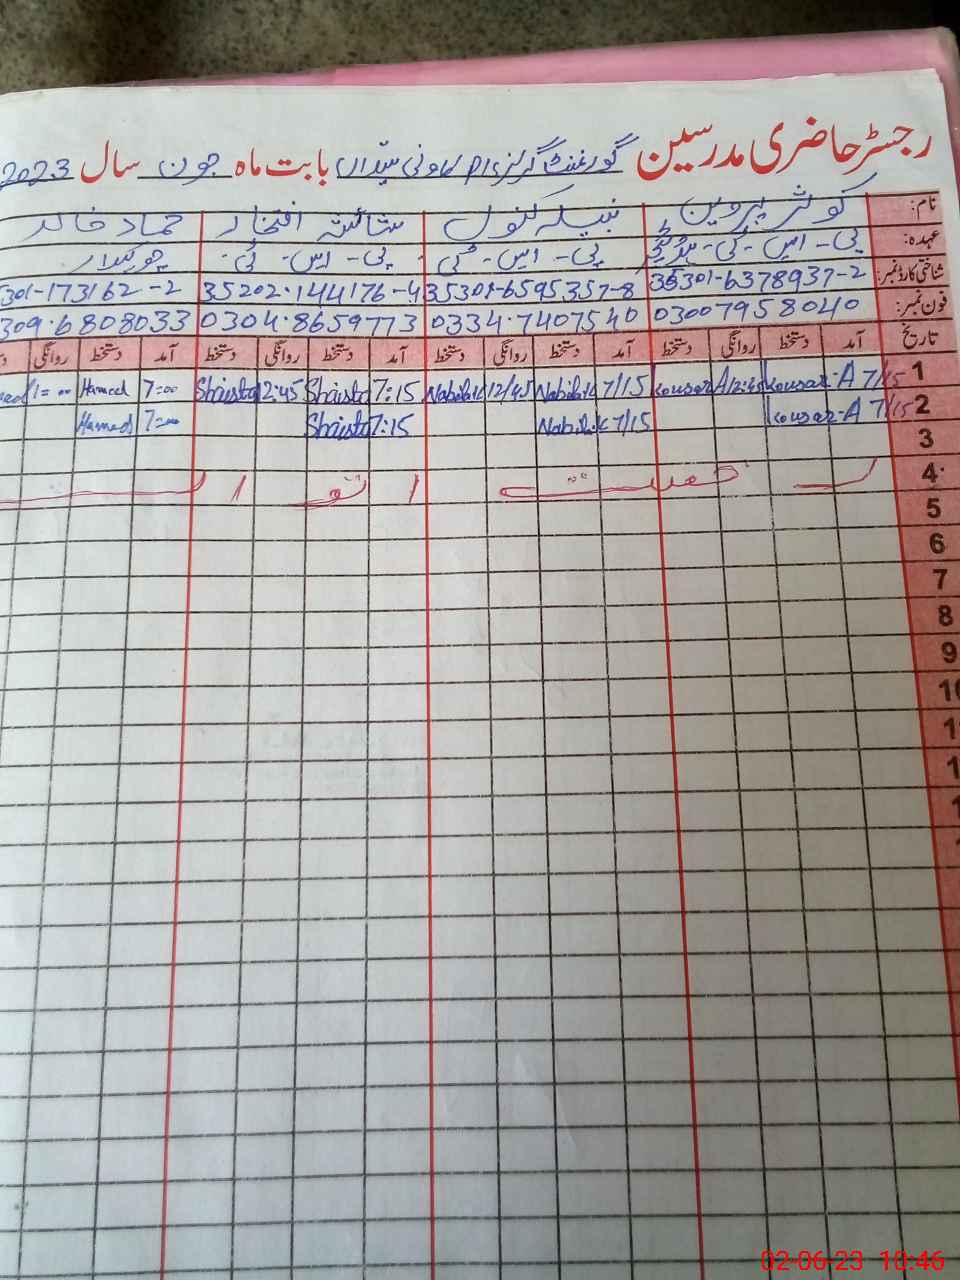 رجسٹر حاضری مدرسین گورنمنٹ گرلز بابت ماہ جون سال 2023
نام: کوثر پروین نبیلہ کنول شائستہ افتخار حماد خالد
عہدہ: پی۔ایس۔ٹی۔ہیڈ ٹیچر پی۔ایس۔ٹی پی۔ایس۔ٹی چوکیدار
شناختی کارڈ نمبر: 35301-6378937-2 35301-6595357-8 35202.144176-4 301-173162-2
فون نمبر: 03007958040 0334.7407540 0304.8659773 309.6808033
تاریخ آمد دستخط روانگی دستخط آمد دستخط روانگی دستخط آمد دستخط روانگی دستخط آمد دستخط روانگی
1 7/15 Kousar-A 12:45 Kousar A 7/15 Nabila.K 12/45 Nabila.K 7:15 Shaista 12:45 Shaista 7=00 Hamad 1=00
2 7/15 Kousar-A 7/15 Nabila.K 7:15 Shaista 7=00 Hamad
3
4
5
6
7
8
9
10
02-06-23 10:46